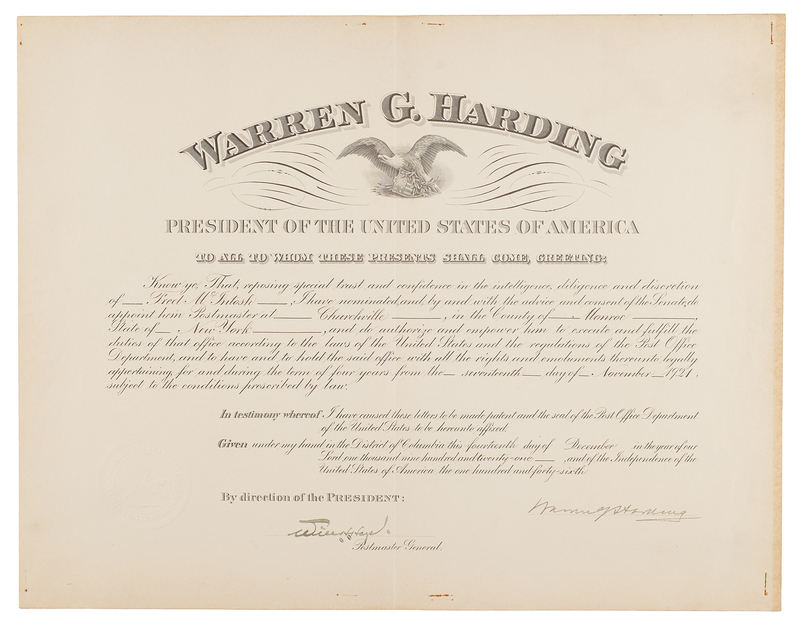 WARREN G. HARDING
PRESIDENT OF THE UNITED STATES OF AMERICA
TO ALL TO WHOM THESE PRESENTS SHALL COME, GREETING:
Know ye, That, reposing special trust and confidence in the intelligence, diligence and discretion
of Fred McIntosh, I have nominated, and, by and with the advice and consent of the Senate, do
appoint him Postmaster at Churchville, in the County of Monroe,
State of New York, and do authorize and empower him to execute and fulfill the
duties of that office according to the laws of the United States and the regulations of the Post Office
Department, and to have and to hold the said office with all the rights and emoluments thereunto legally
appertaining, for and during the term of four years from the seventeenth day of November 1921,
subject to the conditions prescribed by law.
In testimony whereof I have caused these letters to be made patent and the seal of the Post Office Department
of the United States to be hereunto affixed.
Given under my hand in the District of Columbia this fourteenth day of December in the year of our
Lord one thousand nine hundred and twenty-one, and of the Independence of the
United States of America the one hundred and forty-sixth
By direction of the PRESIDENT:
Warren G Harding
Will H Hays
Postmaster General.